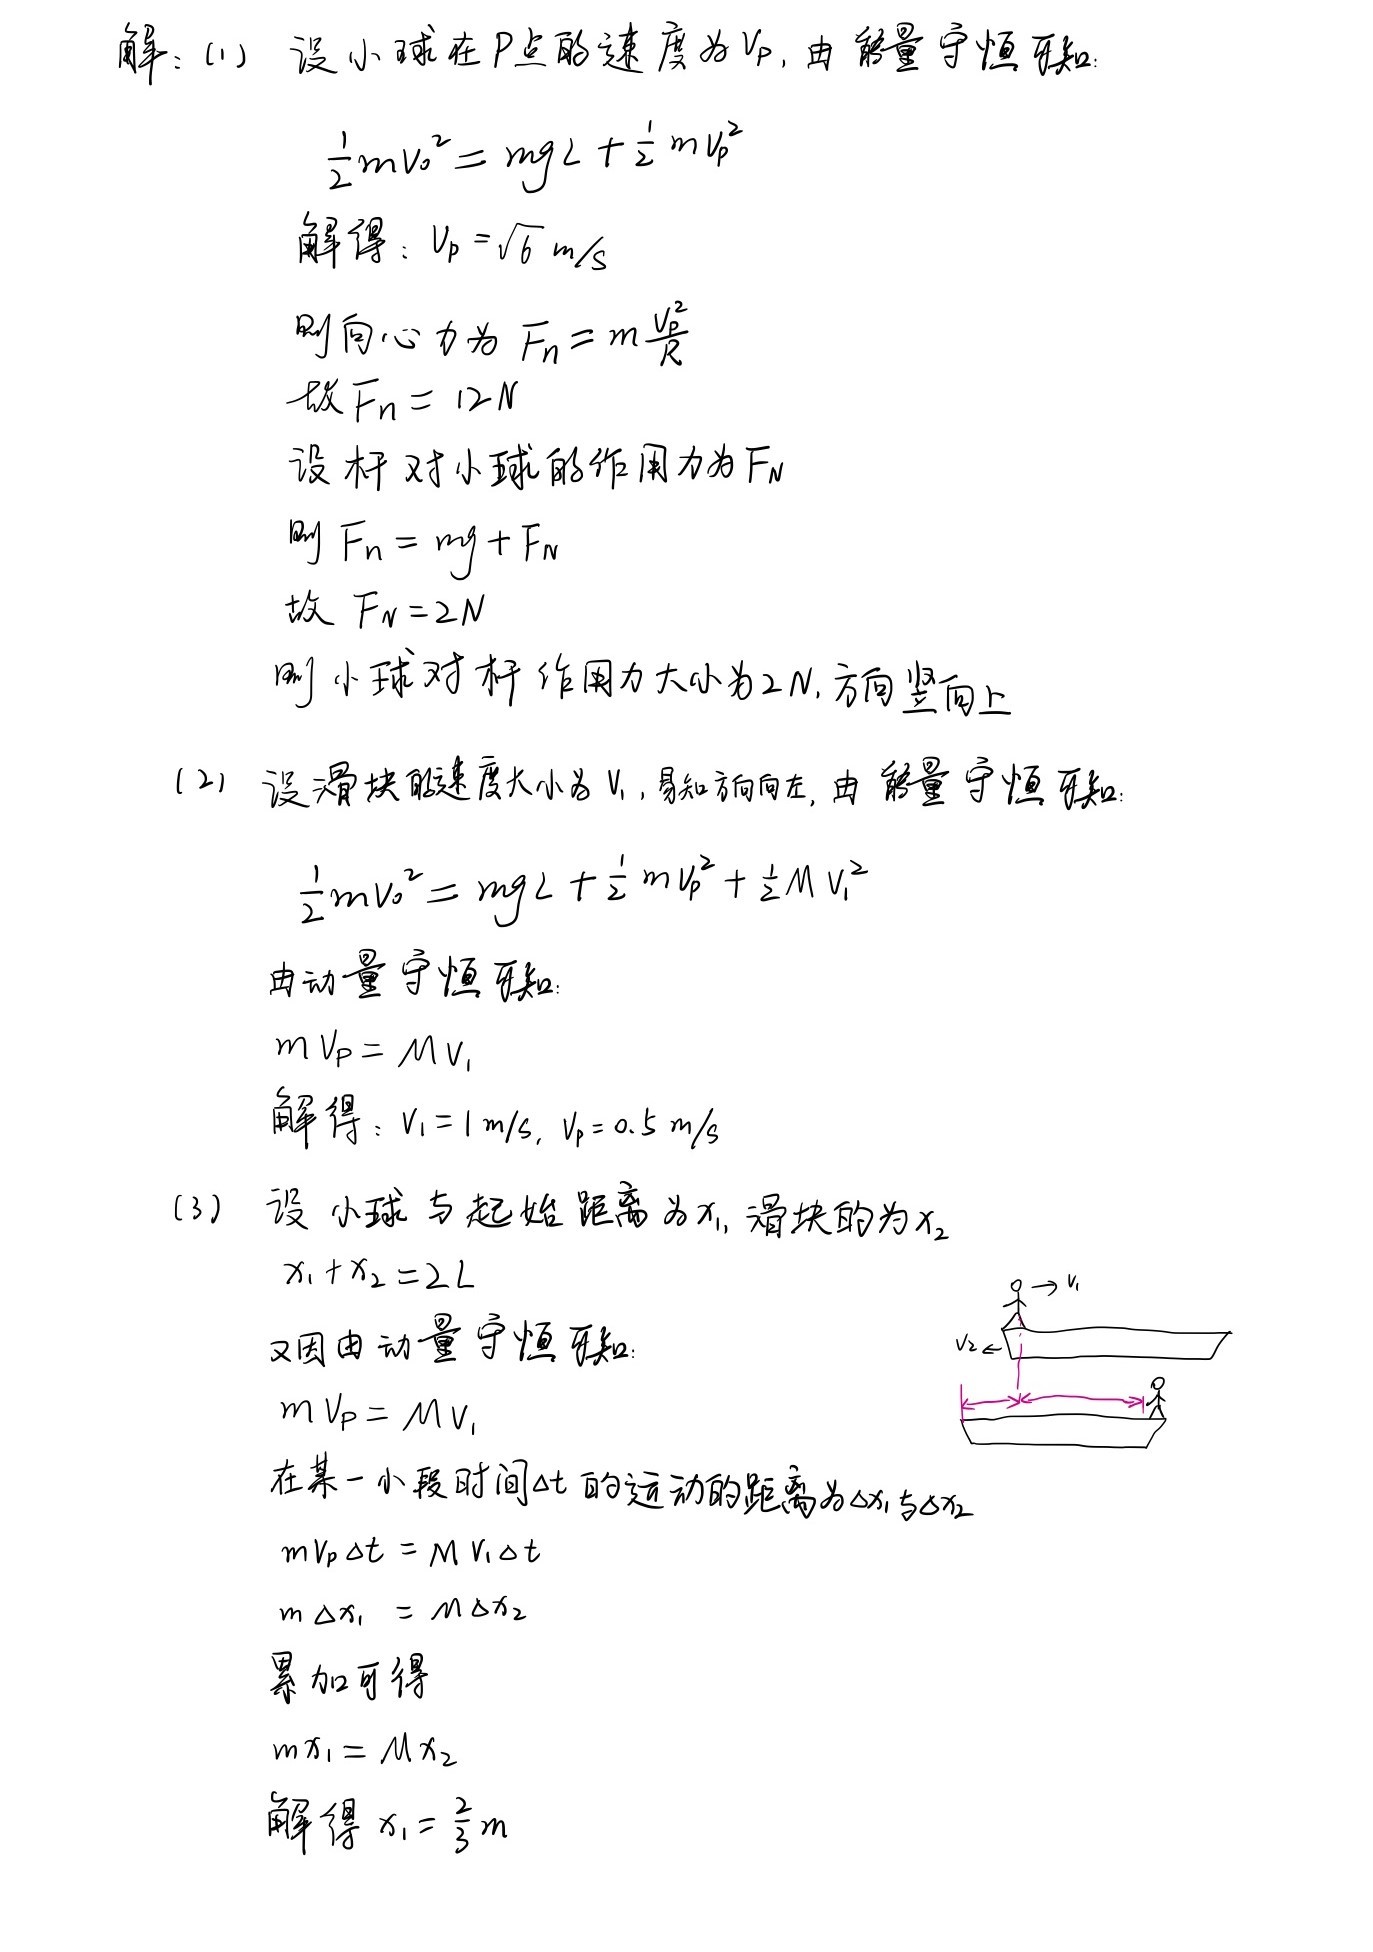 解：(1) 设小球在P点的速度为Vₚ, 由能量守恒可知:
½mV₀² = mgL + ½mVₚ²
解得：Vₚ = √6 m/s
则向心力为 Fₙ = m Vₚ²/R
故 Fₙ = 12N
设杆对小球的作用力为 F_N
则 Fₙ = mg + F_N
故 F_N = 2N
则小球对杆作用力大小为2N, 方向竖向上
(2) 设滑块的速度大小为V₁, 易知方向向左, 由能量守恒可知:
½mV₀² = mgL + ½mVₚ² + ½MV₁²
由动量守恒可知:
mVₚ = MV₁
解得：V₁ = 1 m/s, Vₚ = 0.5 m/s
(3) 设小球与起始距离为x₁, 滑块的为x₂
x₁ + x₂ = 2L
又因由动量守恒可知:
mVₚ = MV₁
在某一小段时间Δt的运动的距离为Δx₁与Δx₂
mVₚΔt = MV₁Δt
mΔx₁ = MΔx₂
累加可得
mx₁ = Mx₂
解得 x₁ = ⅔ m
V₁
V₂